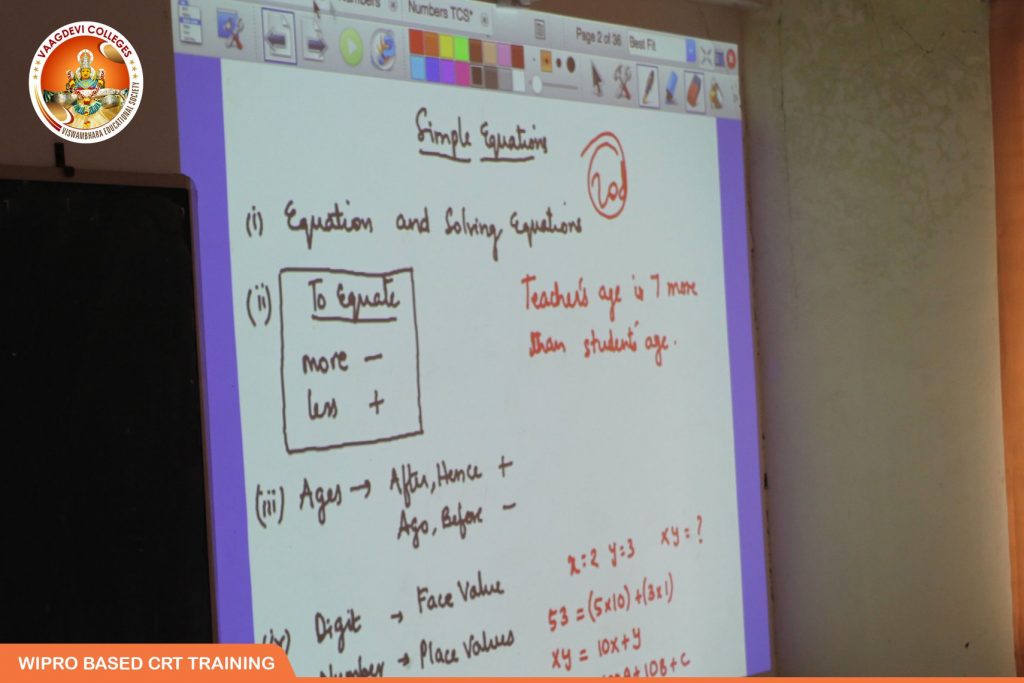 VAAGDEVI COLLEGES
VISWAMBHARA EDUCATIONAL SOCIETY
Numbers TCS*
Page 2 of 36 Best Fit
Simple Equations
(i) Equation and Solving Equations
(ii) To Equate
more −
less +
Teacher's age is 7 more
than student's age.
(iii) Ages → After, Hence +
Ago, Before −
x=2 y=3 xy=?
(iv) Digit → Face Value
53 = (5x10)+(3x1)
Number → Place Values
xy = 10x+y
+10B+C
WIPRO BASED CRT TRAINING